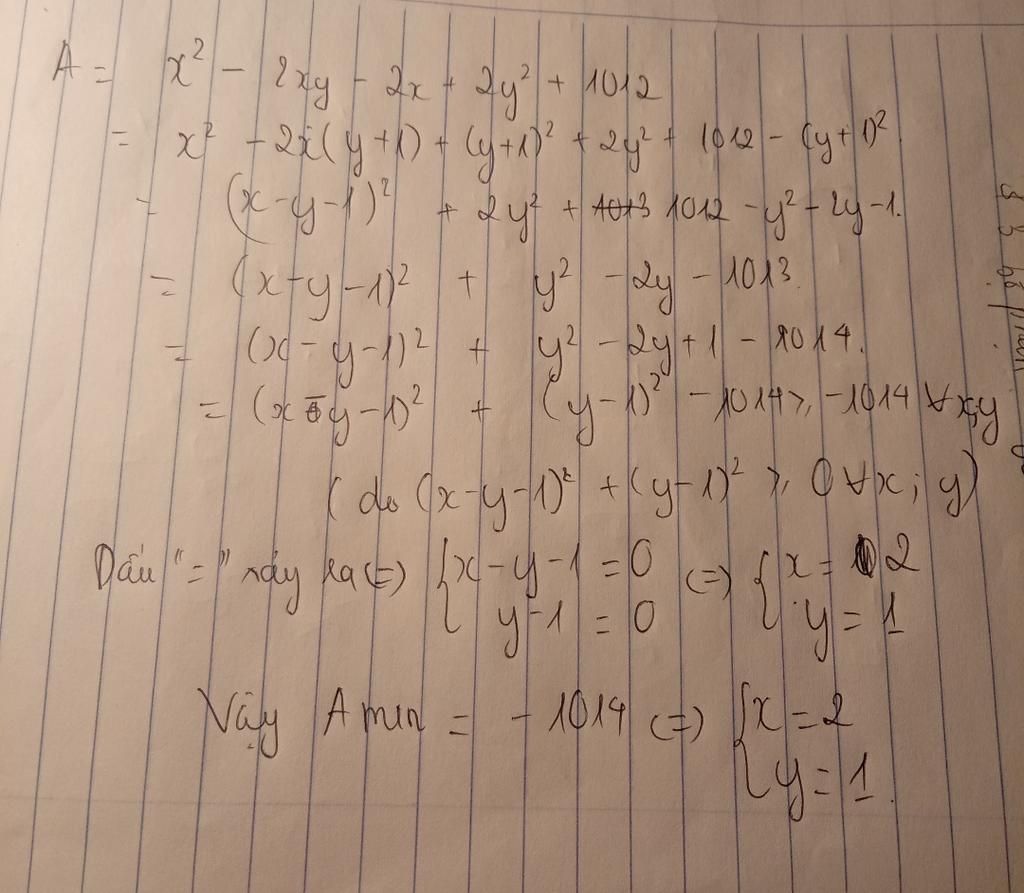 A = x² - 2xy - 2x + 2y² + 1012
= x² - 2x(y+1) + (y+1)² + 2y² + 1012 - (y+1)²
= (x-y-1)² + 2y² + 1013 1012 - y² - 2y - 1.
= (x-y-1)² + y² - 2y - 1013.
= (x-y-1)² + y² - 2y + 1 - 1014.
= (x-y-1)² + (y-1)² - 1014 ⩾ -1014 ∀x;y
(do (x-y-1)² + (y-1)² ⩾ 0 ∀x; y)
Dấu "=" xảy ra <=> { x-y-1 = 0 <=> { x = 2
y-1 = 0 y = 1
Vậy A min = -1014 <=> { x = 2
y = 1.